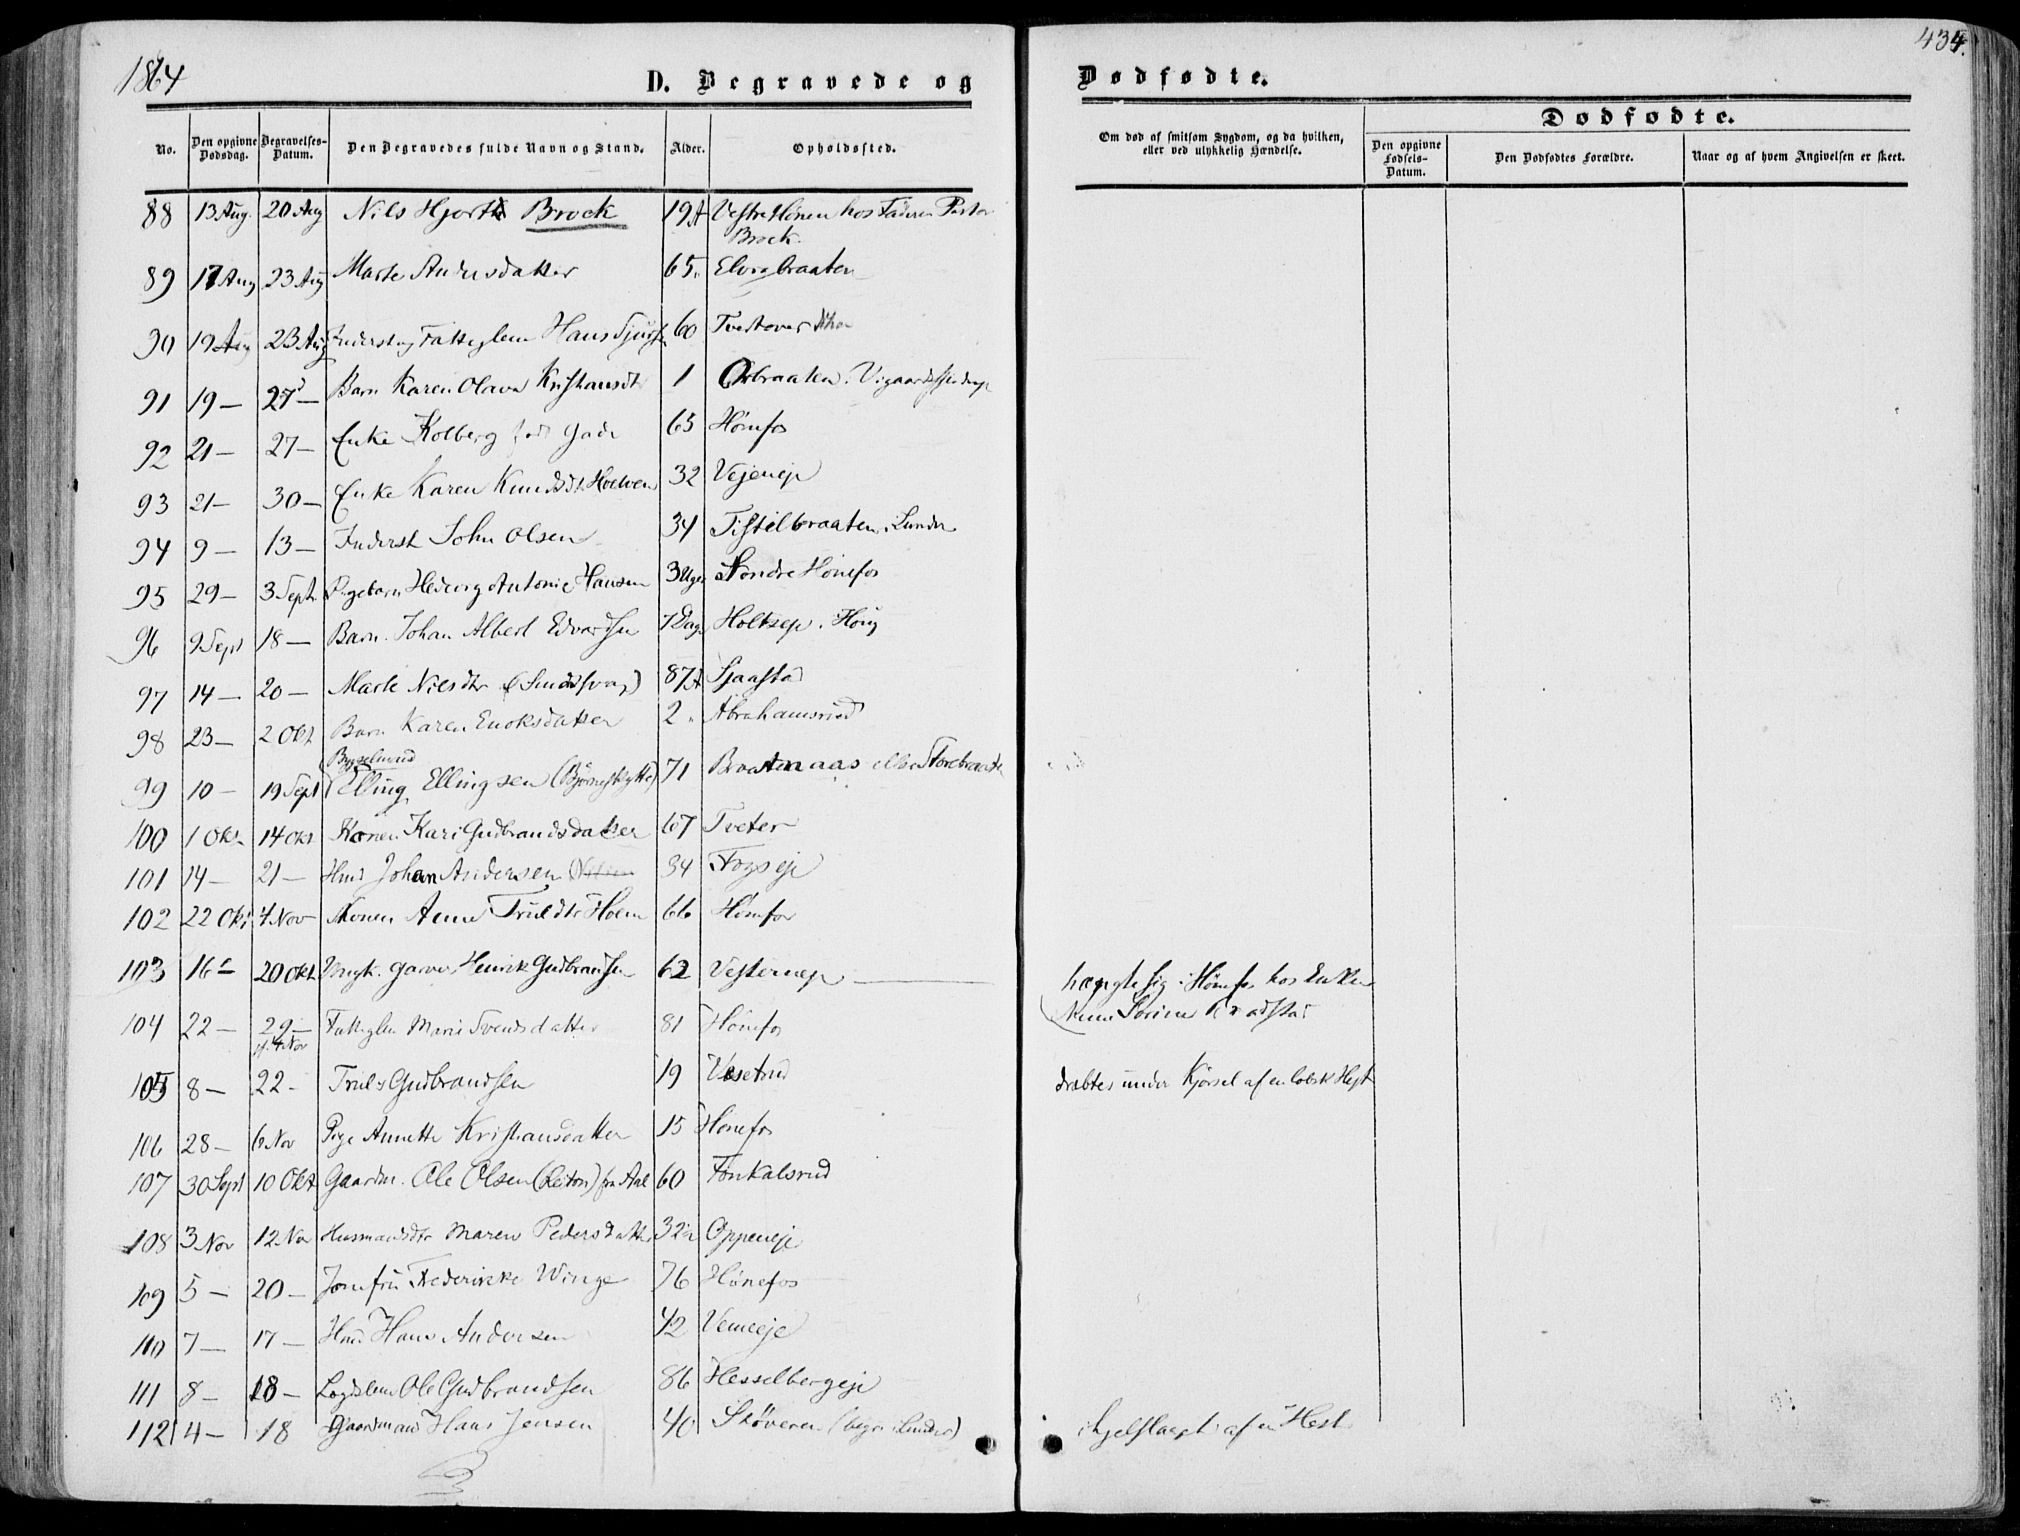 1864
434.
D. Begravede og Dødfødte.
No. Den opgivne Dødsdag. Begravelses-Datum. Den Begravedes fulde Navn og Stand. Alder. Opholdssted.
Om død af smitsom Sygdom, og da hvilken, eller ved ulykkelig Hændelse.
Dødfødte.
Den opgivne Fødsels-Datum. Den Dødfødtes Forældre. Naar og af hvem Angivelsen er skeet.
88 13 Aug. 20 Aug Nils Hjorth Brock 19 A Vestre Hønen hos Faderen Pastor
Brock.
89 17 Aug 23 Aug Marte Andersdatter 65 Elvrabraaten
90 19 Aug 23 Aug Inderst og Fattiglem Hans 60
91 19 — 27 — Barn Karen Olava Kristiansdt 1
92 21 — 27 — Enke Kolberg født Gade 65 Hønefos
93 21 — 30 — Enke Karen Knudsdt Hvelven 32 Vejeneje
94 9 — 13 — Inderst John Olsen 34 Tistilbraaten i Lunder
95 29 — 3 Sept. Pigebarn Hedevig Antonie Hansen 3 Uger Søndre Hønefos
96 9 Sept 18 — Barn Johan Albert Edvardsen 7 Dage Holtseje. Houg
97 14 — 20 — Marte Nilsdtr 87 A Sjaastad
98 23 — 2 Okt Barn Karen Enoksdatter 2 " Abrahamsrud
99 10 — 19 Sept Bygselmand
Elling Ellingsen (Bjørneskytte) 71 Braatenaas eller Storebraaten
100 1 Okt. 14 Okt Konen Kari Gudbrandsdatter 67 Tveter
101 14 — 21 — Hmd Johan Andersen 34
102 22 Okt 4 Nov Konen Anne Trulsdtr Holm 66 Hønefos
103 16 — 20 Okt. Ungk. Garver Henrik Gudbrandsen 62 Vesterneje — hængte sig i Hønefos hos Enken
Anne Sørine
104 22 — 29 — Fattiglem Marie Svendsdatter 81 Hønefos
4 Nov
105 8 — 22 — Truls Gudbrandsen 19 Vesetrud dræbtes under Kjørsel af en løbsk Hest
106 28 — 6 Nov Pige Annette Kristiansdatter 15 Hønefos
107 30 Sept 10 Okt. Gaardm. Ole Olsen (Leiton) fra Aal 60 Fonkalsrud
108 3 Nov 12 Nov Husmandsdtr Maren Pedersdatter 32 Oppeneje
109 5 — 20 — Jomfru Frederikke Winge 76 Hønefos
110 7 — 17 — Hmd Hans Andersen 42 Vemeeje
111 8 — 18 — Lægdslem Ole Gudbrandsen 86 Hesselbergeje
112 4 — 18 Gaardmand Hans Jensen 40 Støveren (begr. i Lunder) ihjelslaget af en Hest